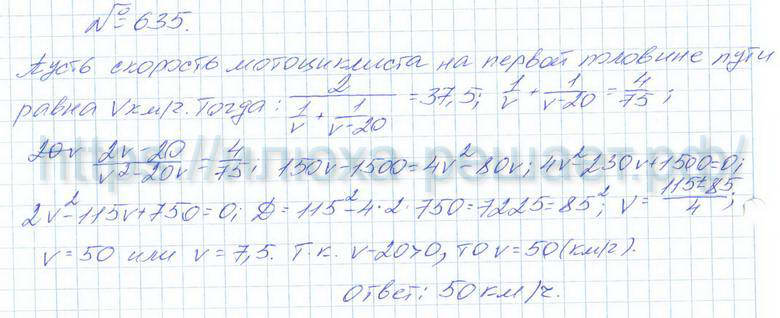 № 635.
Пусть скорость мотоциклиста на первой половине пути
равна v км/ч. Тогда: 2/(1/v + 1/(v-20)) = 37,5; 1/v + 1/(v-20) = 4/75;
20v (2v-20)/(v²-20v) = 4/75; 150v-1500=4v²-80v; 4v²-230v+1500=0;
2v²-115v+750=0; D=115²-4·2·750=7225=85²; v=(115±85)/4;
v=50 или v=7,5. Т.к. v-20>0, то v=50(км/ч).
Ответ: 50 км/ч.